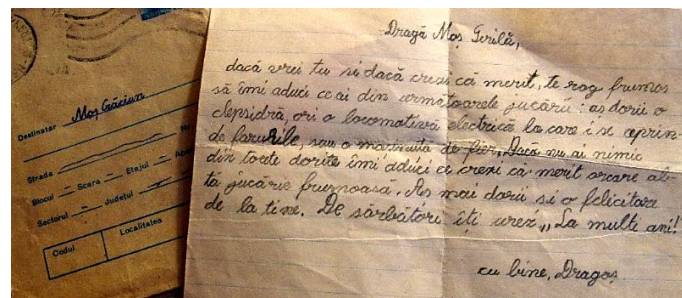 Destinatar Moș Crăciun
Nr
Strada
Blocul Scara Etajul Apa
Sectorul Județul
Codul Localitatea
Dragă Moș Gerilă,
dacă vrei tu si dacă crezi că merit, te rog frumos
să îmi aduci ce ai din urmatoarele jucării: as dorii o
clepsidră, ori a locomotivă electrică la care i se aprin-
de farurile, sau o de fier, Dacă nu ai nimic
din toate dorite îmi aduci ce crezi că merit orcare al-
tă jucărie frumoasa. As mai dorii si o felicitare
de la tine. De sărbători îti urez „La multe ani!
cu bine, Dragoș